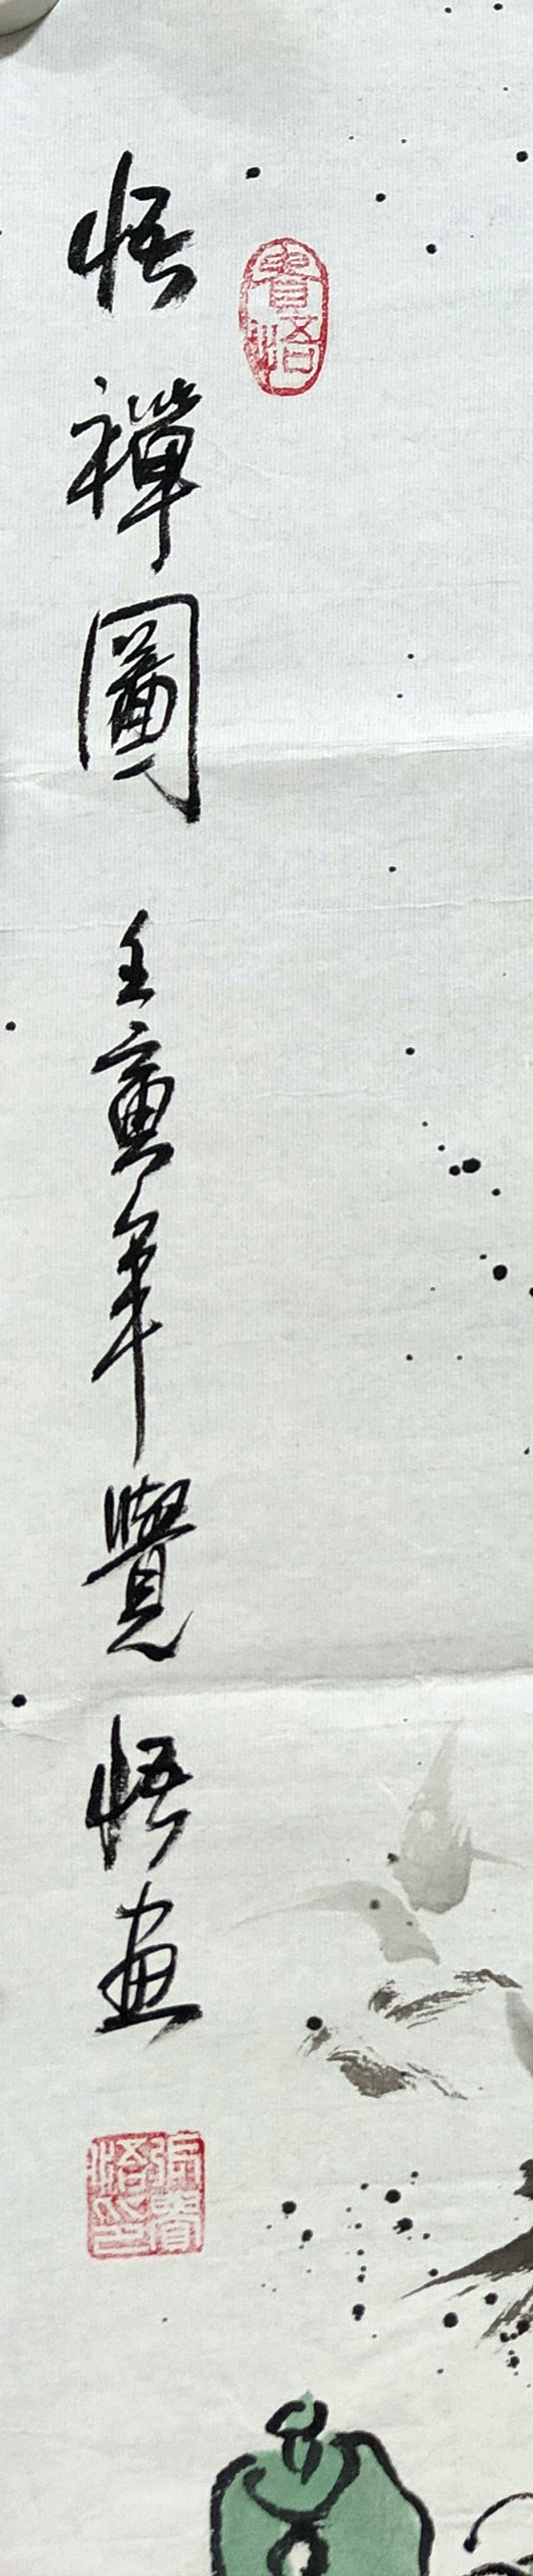 悟禪圖 壬寅年覺悟畫